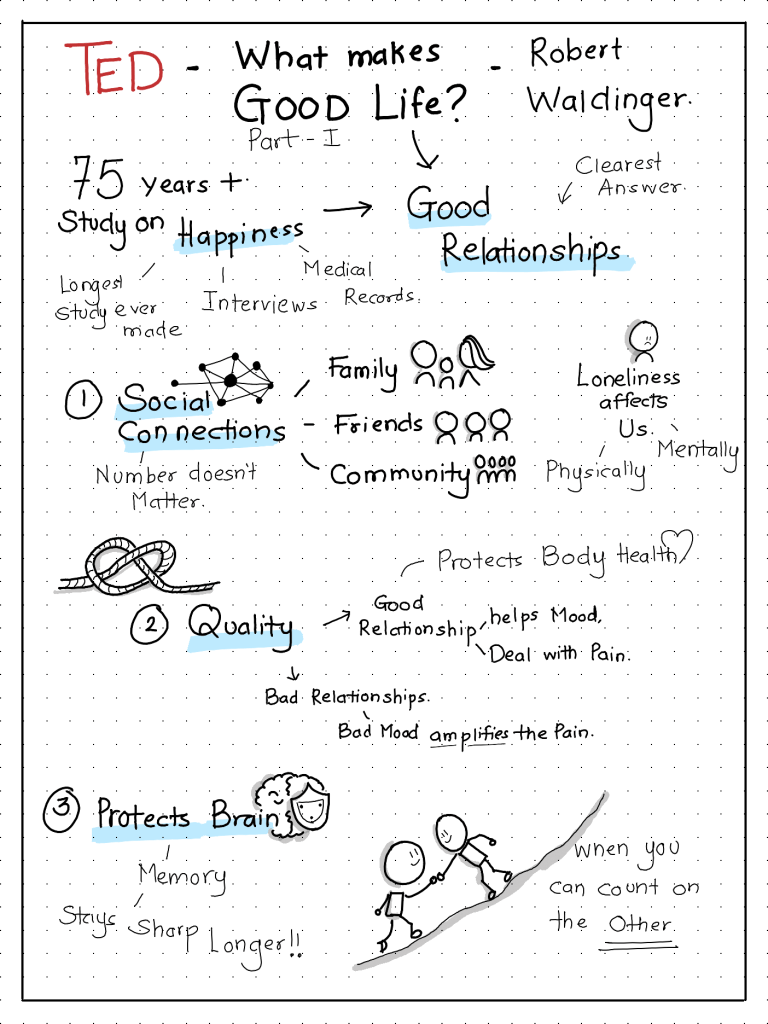 TED - What makes - Robert
GOOD Life? Waldinger.
Part - I
75 years +
Study on Happiness → Good
Relationships.
Clearest
Answer.
Longest
Study ever
made
Interviews
Medical
Records.
1 Social
Connections
Number doesn't
Matter.
Family
- Friends
Community
Loneliness
affects
Us.
Physically
Mentally
2 Quality
Good
Relationship
Protects Body Health
helps Mood,
Deal with Pain.
Bad Relationships.
Bad Mood amplifies the Pain.
3 Protects Brain
Memory
Stays Sharp Longer!!
when you
can count on
the Other.